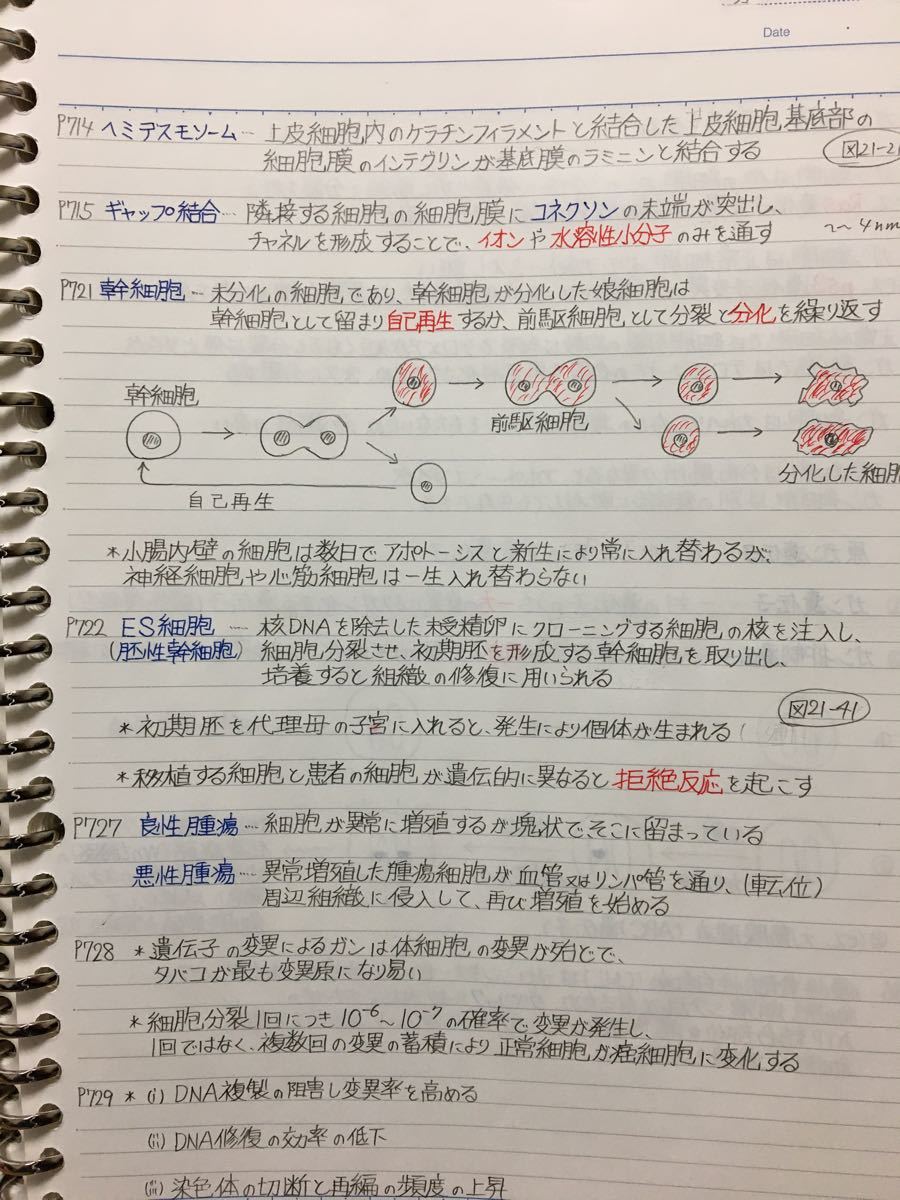 Date
P714 ヘミデスモソーム… 上皮細胞内のケラチンフィラメントと結合した上皮細胞基底部の
細胞膜のインテグリンが基底膜のラミニンと結合する 図21-2
P715 ギャップ結合… 隣接する細胞の細胞膜にコネクソンの末端が突出し、
チャネルを形成することで、イオンや水溶性小分子のみを通す 〜4nm
P721 幹細胞… 未分化の細胞であり、幹細胞が分化した娘細胞は
幹細胞として留まり自己再生するか、前駆細胞として分裂と分化を繰り返す
幹細胞
前駆細胞
分化した細胞
自己再生
*小腸内壁の細胞は数日でアポトーシスと新生により常に入れ替わるが、
神経細胞や心筋細胞は一生入れ替わらない
P722 ES細胞 … 核DNAを除去した未受精卵にクローニングする細胞の核を注入し、
(胚性幹細胞) 細胞分裂させ、初期胚を形成する幹細胞を取り出し、
培養すると組織の修復に用いられる
図21-41
*初期胚を代理母の子宮に入れると、発生により個体が生まれる
*移植する細胞と患者の細胞が遺伝的に異なると拒絶反応を起こす
P727 良性腫瘍… 細胞が異常に増殖するが塊状でそこに留まっている
悪性腫瘍… 異常増殖した腫瘍細胞が血管又はリンパ管を通り、(転位)
周辺組織に侵入して、再び増殖を始める
P728 *遺伝子の変異によるガンは体細胞の変異が殆どで、
タバコが最も変異原になり易い
*細胞分裂1回につき10⁻⁶〜10⁻⁷の確率で変異が発生し、
1回ではなく、複数回の変異の蓄積により正常細胞が癌細胞に変化する
P729 *(i) DNA複製の阻害し変異率を高める
(ii) DNA修復の効率の低下
(iii) 染色体の切断と再編の頻度の上昇